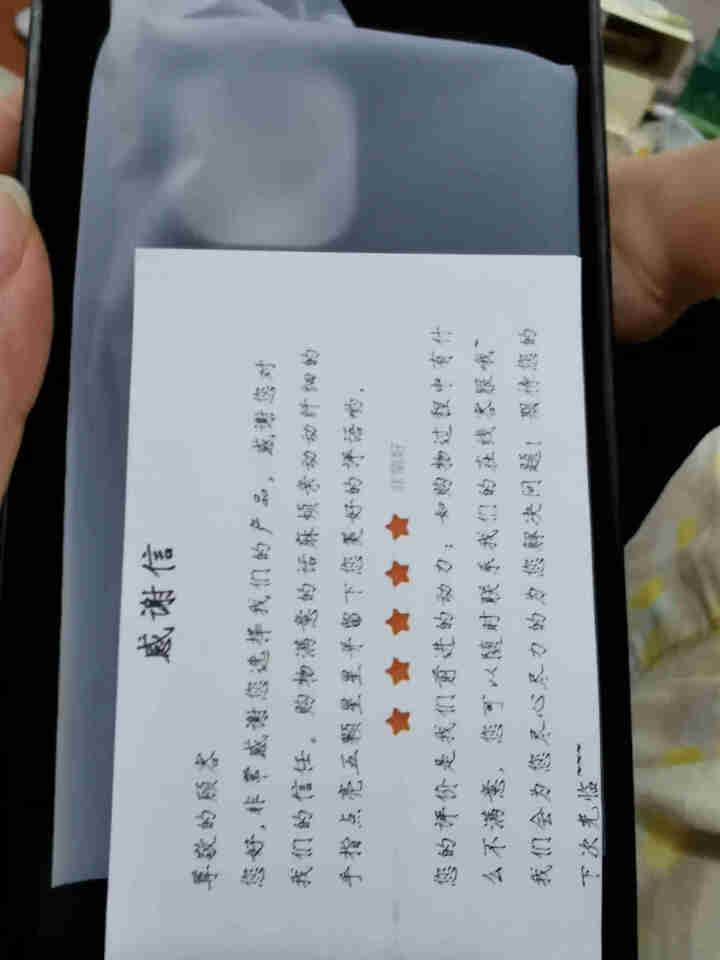 感谢信
尊敬的顾客
您好,非常感谢您选择我们的产品,感谢您对
我们的信任。购物满意的话麻烦亲动动纤细的
手指点亮五颗星星并留下您更好的评语哟,
非常好
您的评价是我们前进的动力;如购物过程中有什
么不满意,您可以随时联系我们的在线客服哦~
我们会为您尽心尽力的为您解决问题!期待您的
下次光临~~~